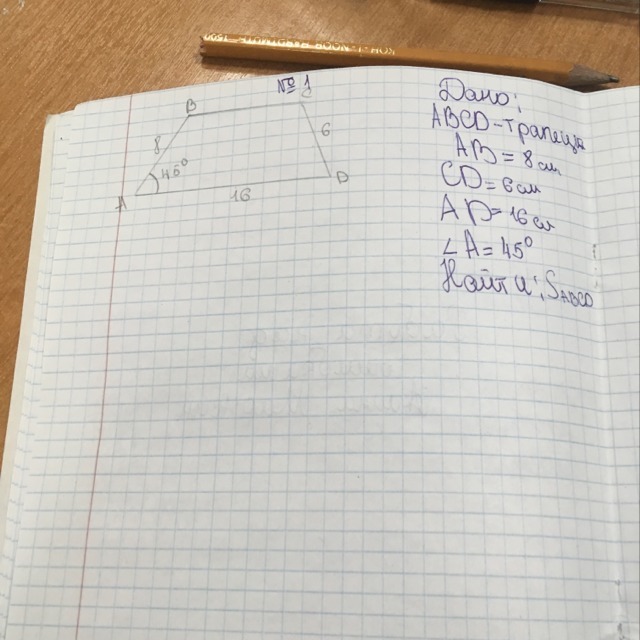 № 1
B
C
8
6
45°
A
16
D
Дано:
ABCD-трапеция
AB = 8 см
CD = 6 см
AD = 16 см
∠A = 45°
Найти: SABCD